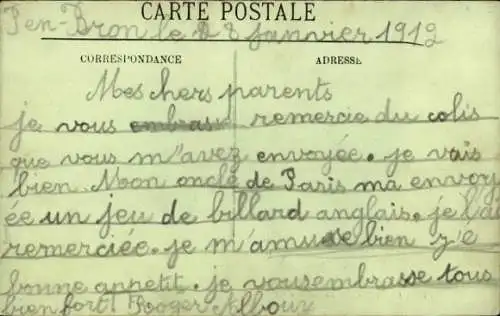 CARTE POSTALE
Pen-Bron le 28 janvier 1912
CORRESPONDANCE ADRESSE
Mes chers parents
je vous embrass remercie du colis
que vous m'avez envoyée. je vais
bien Mon oncle de Paris ma envoy
ée un jeu de billard anglais. je l'ai
remerciée. je m'amuse bien j'é
bonne appetit. je vous embrasse tous
bien fort!